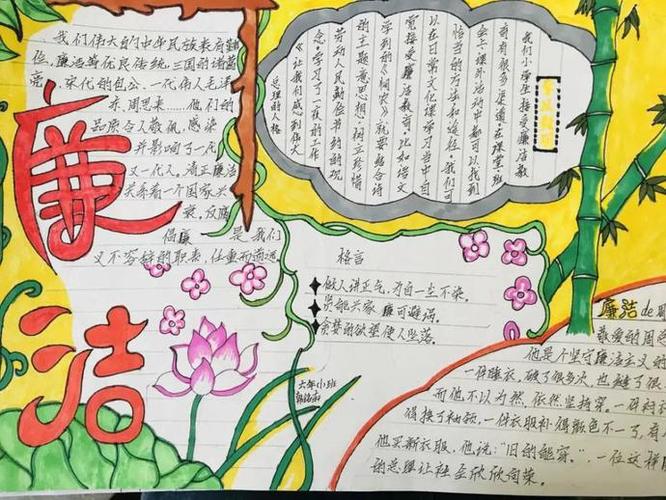 廉洁
我们伟大的中华民族素有勤
俭,廉洁等优良传统,三国的诸葛
亮,宋代的包公,一代伟人毛泽
东,周恩来……他们的
品质令人敬佩,感染
并影响了一代
又一代人。清正廉洁
关系着一个国家兴
衰,反腐
倡廉 是我们
义不容辞的职责,任重而道远
我们小学生接受廉洁教
育有很多渠道,在课堂、班
会、课外活动中都可以找到
恰当的方法和途径。我们可
以在日常文化课学习当中自
觉接受廉洁教育。比如语文
学到的《悯农》就要结合诗
的主题意思想,树立珍惜
劳动人民勤俭节约的观
念。学习了一夜的工作
《让我们感到伟大
总理的人格
格言
做人讲正气,为官一尘不染。
贤能兴家 廉可避祸。
贪婪的欲望使人坠落。
六年(1)班
廉洁de
敬爱的周恩
他是个坚守廉洁主义
一件睡衣,破了很多次,也
而他不以为然,依然坚持穿。一件衬
得换了袖领,一件衣服补得颜色不一了,有
他买新衣服,他说:“旧的能穿。”一位这样
的总理让社会欣欣向荣。